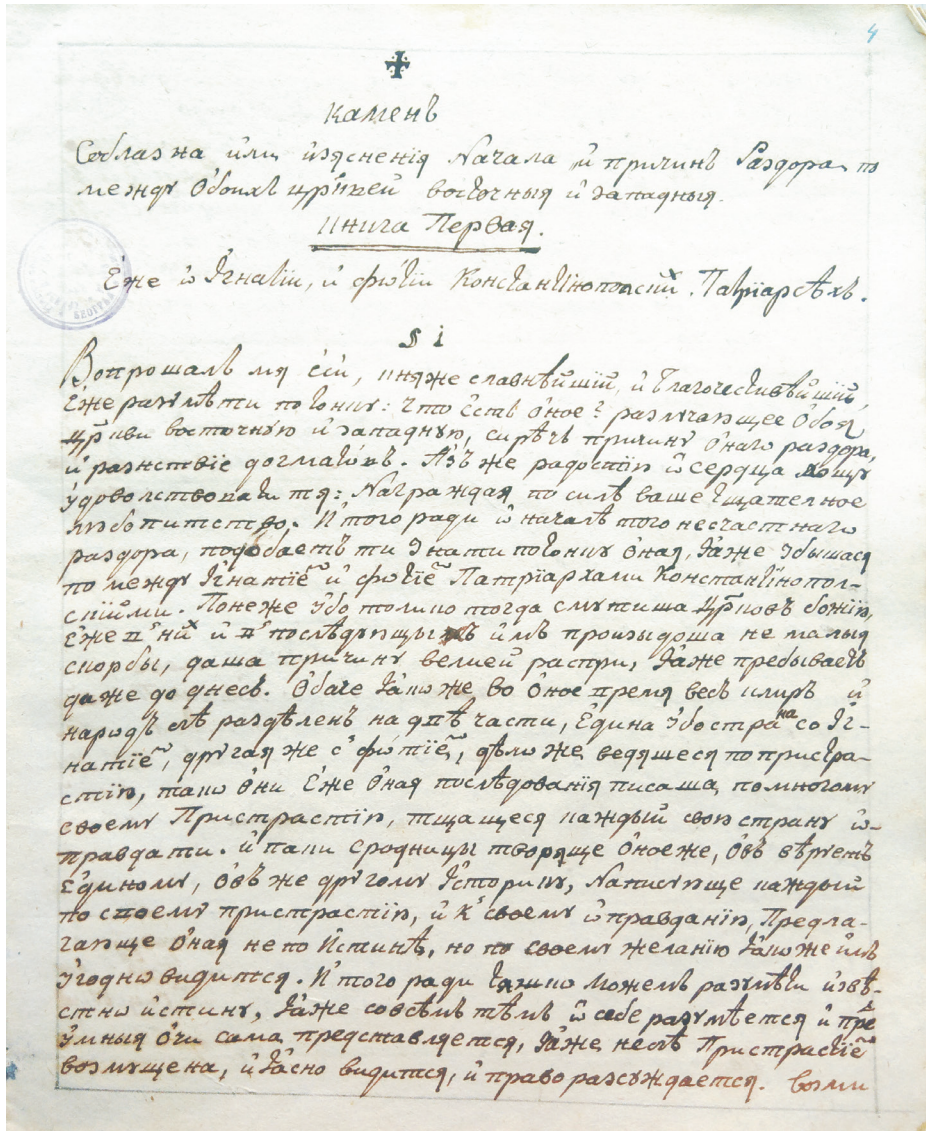 4
Каменъ
Соблазна или изясненїя Начала и причинъ Раздора по
между Обоихъ црк҃вей восточныя и западныя.
Книга Первая.
Еже ѡ Игнатїи, и фѡтїи Константїнополскихъ Патрїарсѣхъ.
§ 1
Вопрошалъ мя еси, княже славнѣйшїй, и благочестивѣйшїй,
Еже разумѣти потонку: что есть ѻное? разлучающее Обоя
Црк҃ви восточную и западную, сирѣчь причину ѻнагѡ раздора,
и разнствїе догматѡвъ. Азъ же радостїю ѿ сердца хощу
удоволствовати тя: Награждая по силѣ ваше тщателное
любопитство. И того ради ѡ началѣ того несчастнагѡ
раздора, подобаетъ ти знати потонку ѻная, Яже збышася
по между Игнатїемъ и фѡтїемъ Патрїархами Константїнопол-
скїими. Понеже убо толико тогда смутиша Црк҃овь божїю,
Еже ѿ нихъ и ѿ послѣдующыхъ имъ произыдоша не малыя
скорбы, даша причину велией распри, Яже пребываетъ
даже до днесь. Обаче Якоже во ѻное время весь клиръ и
народъ бѣ раздѣленъ на двѣ части, Едина убо страна со Иг-
натїемъ, другая же с фѡтїемъ, дѣло же ведящеся по пристра-
стїю, тако ѻни Еже ѻная послѣдованїя писаша помногому
своему Пристрастїю, тщащеся каждый свою страну ѡ-
правдати. и паки сродницы творяще ѻноеже, ѻвъ вѣруетъ
Единому, ѻвъ же другому Историку, Написующе каждый
по своему пристрастїю, и къ своему ѡправданїю, Предла-
гающе ѻная не по Истинѣ, но по своему желанїю Якоже имъ
угоднѡ видится. И того ради тяжко можемъ разумѣти извѣ-
стну истину, Яже совсѣмъ тѣмъ ѿ себе разумѣется и пред
умныя ѻчи сама представляется, Яже нѣсть Пристрастїемъ
возмущена, и Яснѡ видится, и право разсуждается. возми